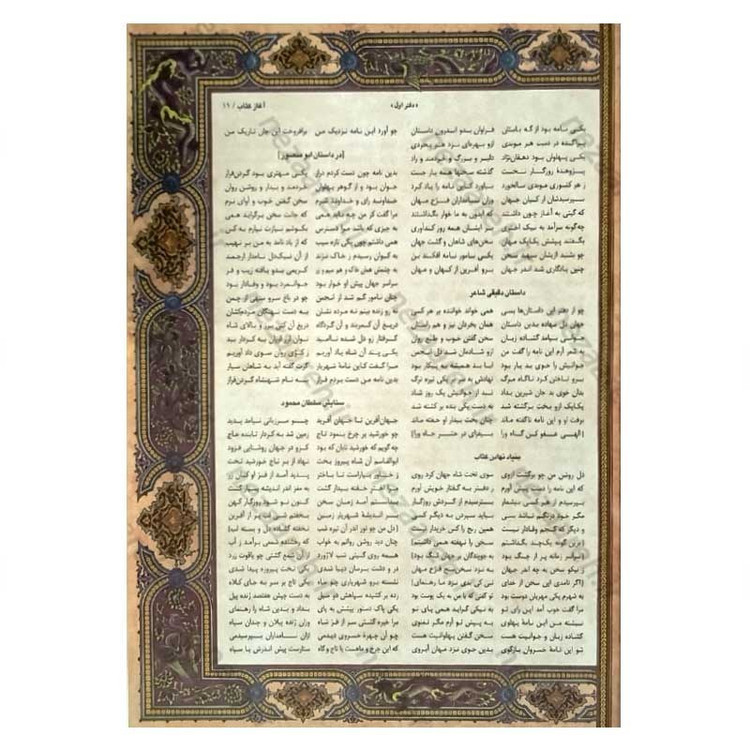 «دفتر اول»
آغاز کتاب / ۱۹
یکی نامه بود از گه باستان فراوان بدو اندرون داستان
پراگنده در دست هر موبدی ازو بهره‌ای نزد هر بخردی
یکی پهلوان بود دهقان‌نژاد دلیر و بزرگ و خردمند و راد
پژوهندهٔ روزگار نخست گذشته سخنها همه باز جست
ز هر کشوری موبدی سالخورد بیاورد کاین نامه را یاد کرد
بپرسیدشان از کیان جهان وزان نامداران فرخ مهان
که گیتی به آغاز چون داشتند که ایدون به ما خوار بگذاشتند
چه‌گونه سرآمد به نیک اختری بر ایشان همه روز کندآوری
بگفتند پیشش یکایک مهان سخن‌های شاهان و گشت جهان
چو بشنید ازیشان سپهبد سخن یکی نامور نامه افکند بن
چنین یادگاری شد اندر جهان برو آفرین از کهان و مهان
داستان دقیقی شاعر
چو از دفتر این داستان‌ها بسی همی خواند خواننده بر هر کسی
جهان دل نهاده بدین داستان همان بخردان نیز و هم راستان
جوانی بیامد گشاده زبان سخن گفتن خوب و طبع روان
به شعر آرم این نامه را گفت من ازو شادمان شد دل انجمن
جوانیش را خوی بد یار بود ابا بد همیشه به پیکار بود
برو تاختن کرد ناگاه مرگ نهادش به سر بر یکی تیره ترگ
بدان خوی بد جان شیرین بداد نبد از جوانیش یک روز شاد
یکایک ازو بخت برگشته شد به دست یکی بنده بر کشته شد
برفت او و این نامه ناگفته ماند چنان بخت بیدار او خفته ماند
الهی عفو کن گناه ورا بیفزای در حشر جاه ورا
بنیاد نهادن کتاب
دل روشن من چو برگشت ازوی سوی تخت شاه جهان کرد روی
که این نامه را دست پیش آورم ز دفتر به گفتار خویش آورم
بپرسیدم از هر کسی بیشمار بترسیدم از گردش روزگار
مگر خود درنگم نباشد بسی بباید سپردن به دیگر کسی
و دیگر که گنجم وفادار نیست همین رنج را کس خریدار نیست
برین گونه یک‌چند بگذاشتم سخن را نهفته همی داشتم
سراسر زمانه پر از جنگ بود به جویندگان بر جهان تنگ بود
ز نیکو سخن به چه اندر جهان به نزد سخن‌سنج فرخ مهان
اگر نامدی این سخن از خدای نبی کی بدی نزد ما رهنمای
به شهرم یکی مهربان دوست بود تو گفتی که با من به یک پوست بود
مرا گفت خوب آمد این رای تو به نیکی گراید همی پای تو
نبشته من این نامهٔ پهلوی به پیش تو آرم مگر نغنوی
گشاده زبان و جوانیت هست سخن گفتن پهلوانیت هست
تو این نامهٔ خسروان بازگوی بدین جوی نزد مهان آبروی
چو آورد این نامه نزدیک من برافروخت این جان تاریک من
[در داستان ابو منصور]
بدین نامه چون دست کردم دراز یکی مهتری بود گردن‌فراز
جوان بود و از گوهر پهلوان خردمند و بیدار و روشن روان
خداوند رای و خداوند شرم سخن گفتن خوب و آوای نرم
مرا گفت کز من چه باید همی که جانت سخن برگراید همی
به چیزی که باشد مرا دسترس بکوشم نیازت نیارم به کس
همی داشتم چون یکی تازه سیب که از باد نامد به من بر نهیب
به کیوان رسیدم ز خاک نژند از آن نیک‌دل نامدار ارجمند
به چشمش همان خاک و هم سیم و زر کریمی بدو یافته زیب و فر
سراسر جهان پیش او خوار بود جوانمرد بود و وفادار بود
چنان نامور گم شد از انجمن چو در باغ سرو سهی از چمن
نه زو زنده بینم نه مرده نشان به دست نهنگان مردم‌کشان
دریغ آن کمربند و آن گردگاه دریغ آن کیی برز و بالای شاه
گرفتار زو دل شده ناامید نوان لرز لرزان به کردار بید
یکی پند آن شاه یاد آوریم ز کژی روان سوی داد آوریم
مرا گفت کاین نامهٔ شهریار گرت گفته آید به شاهان سپار
بدین نامه من دست بردم فراز به نام شهنشاه گردن‌فراز
ستایش سلطان محمود
جهان‌آفرین تا جهان آفرید چنو مرزبانی نیامد پدید
چو خورشید بر چرخ بنمود تاج زمین شد به کردار تابنده عاج
چه گویم که خورشید تابان که بود کزو در جهان روشنایی فزود
ابوالقاسم آن شاه پیروز بخت نهاد از بر تاج خورشید تخت
ز خاور بیاراست تا باختر پدید آمد از فر او کان زر
مرا اختر خفته بیدار گشت به مغز اندر اندیشه بسیار گشت
بدانستم آمد زمان سخن کنون نو شود روزگار کهن
بر اندیشهٔ شهریار زمین بخفتم شبی لب پر از آفرین
دل من چو نور اندر آن تیره شب نخفته گشاده دل و بسته لب
چنان دید روشن روانم به خواب که رخشنده شمعی برآمد ز آب
همه روی گیتی شب لاژورد از آن شمع گشتی چو یاقوت زرد
در و دشت برسان دیبا شدی یکی تخت پیروزه پیدا شدی
نشسته برو شهریاری چو ماه یکی تاج بر سر به جای کلاه
رده بر کشیده سپاهش دو میل به دست چپش هفتصد ژنده پیل
یکی پاک دستور پیشش به پای بداد و بدین شاه را رهنمای
مرا خیره گشتی سر از فر شاه وزان ژنده پیلان و چندان سپاه
چو آن چهرهٔ خسروی دیدمی ازان نامداران بپرسیدمی
که این چرخ و ماهست یا تاج و گاه ستارست پیش اندرش یا سپاه